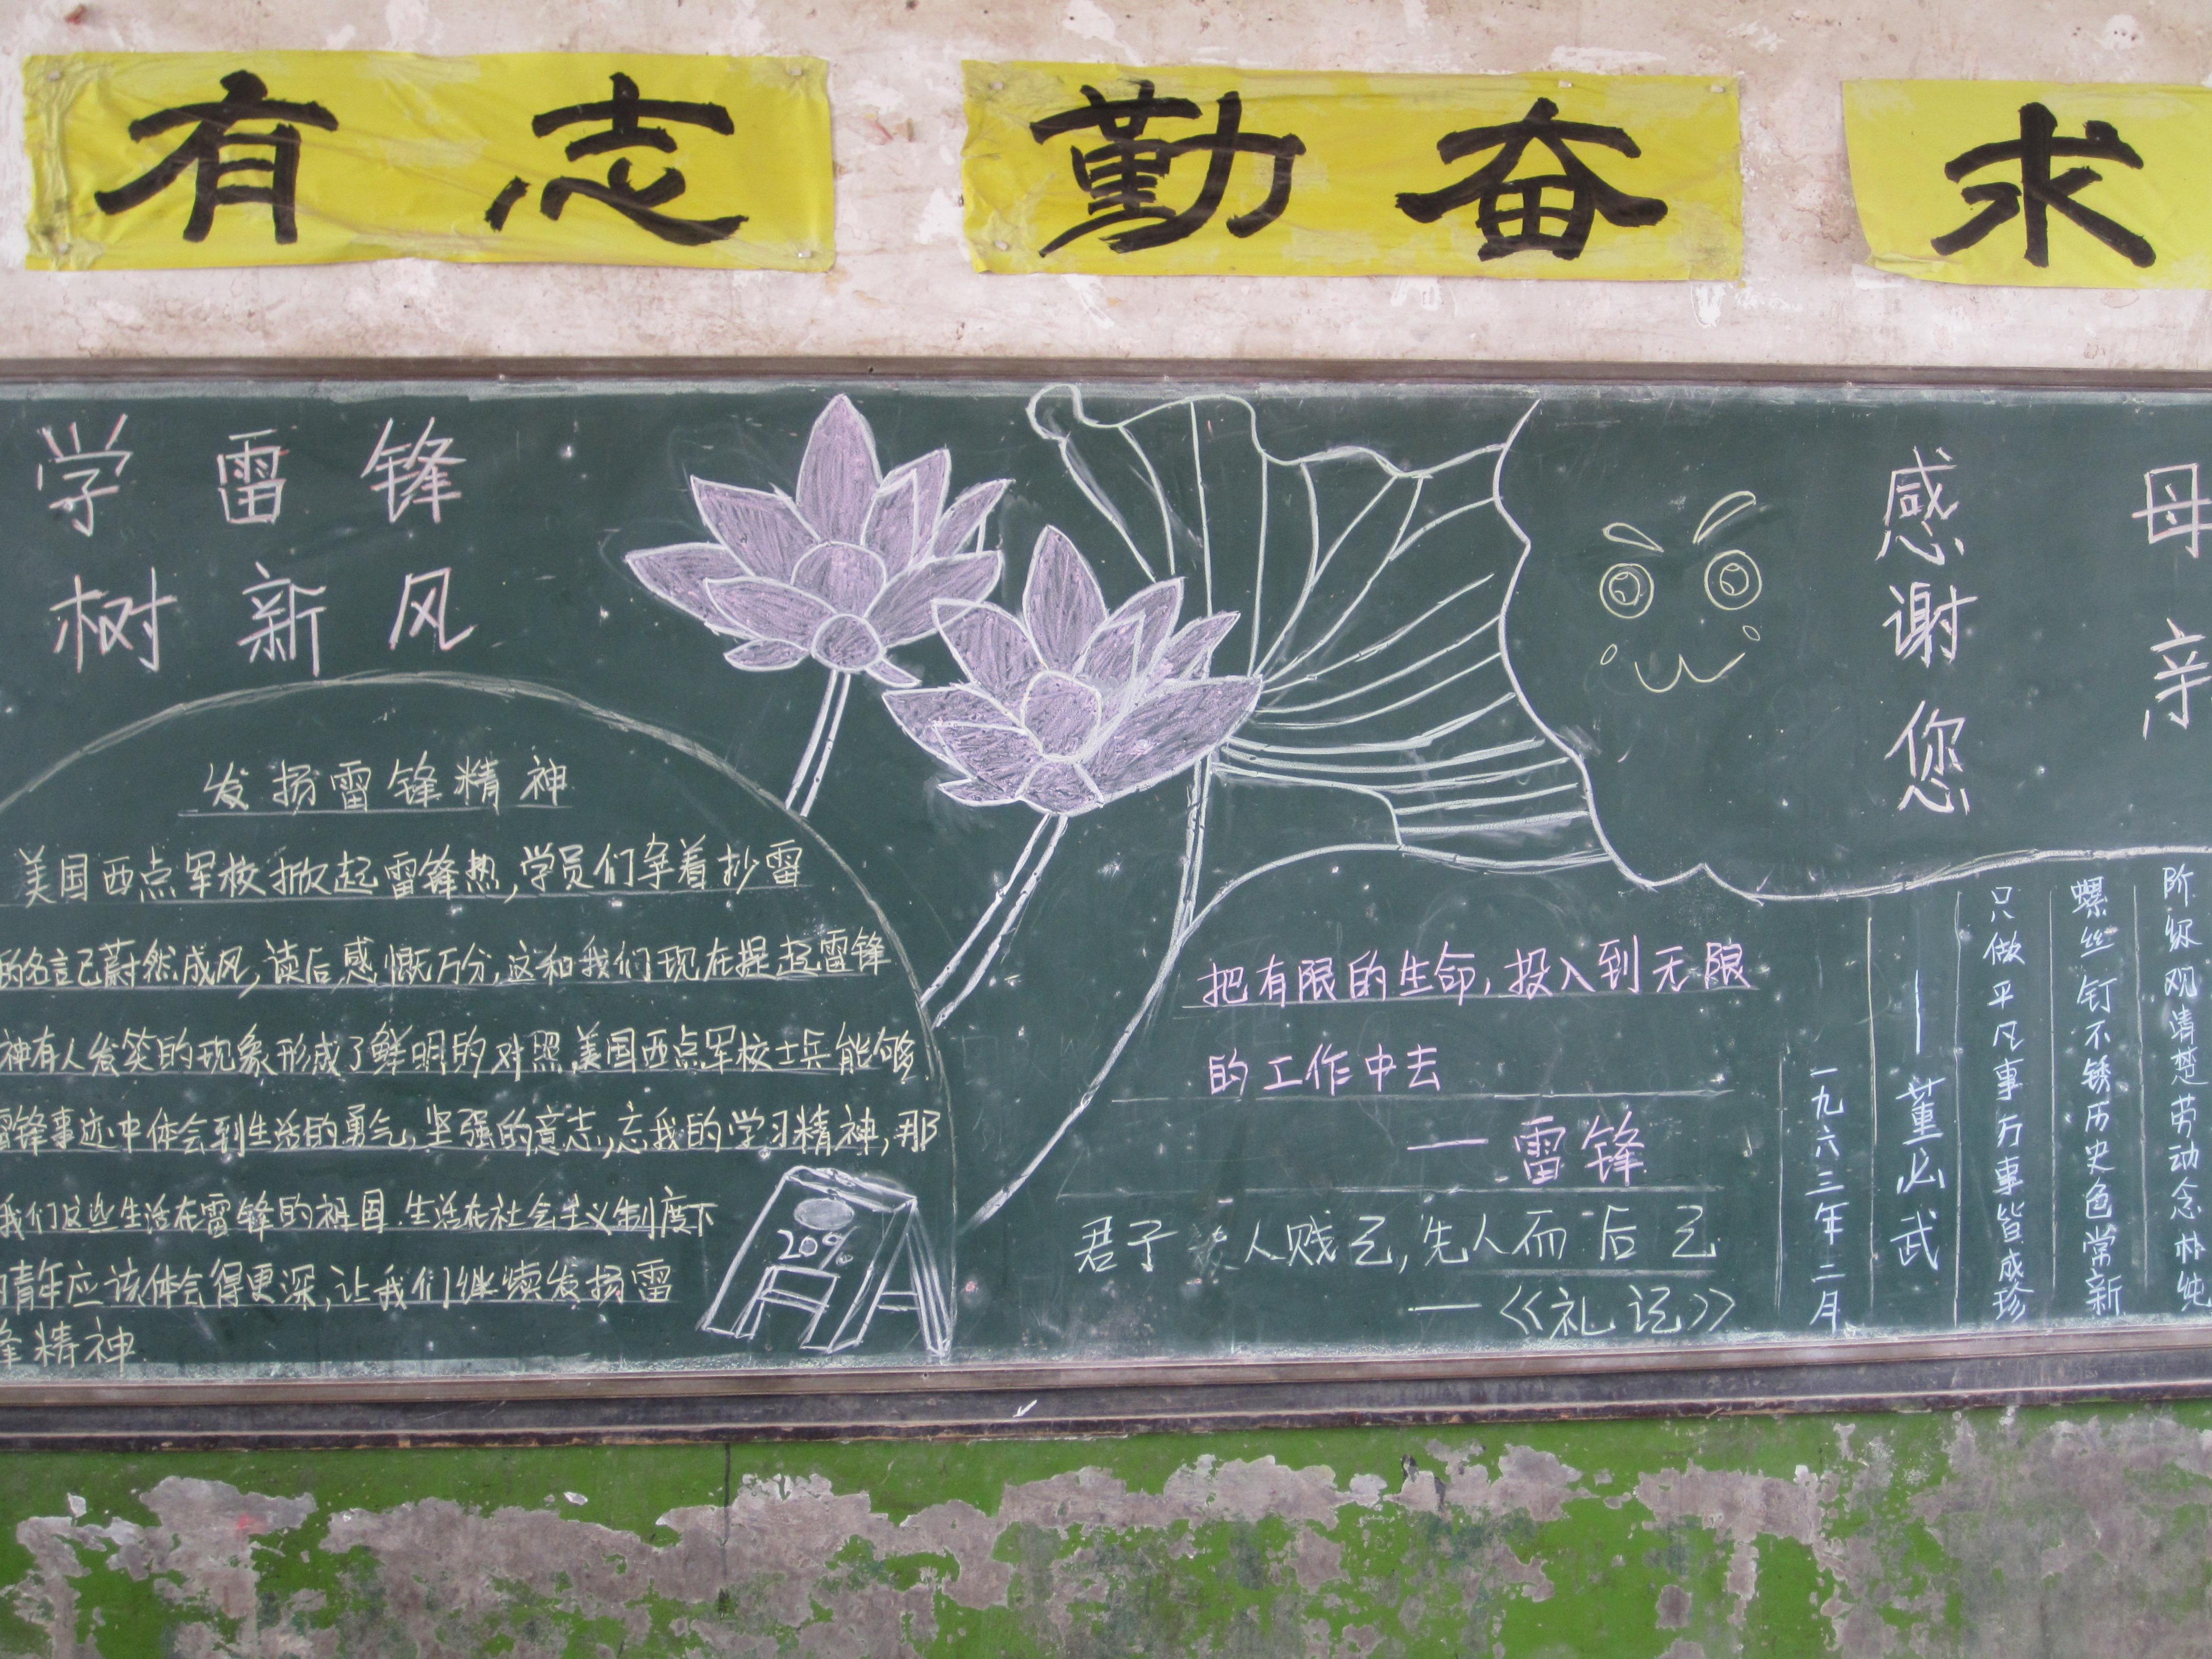 有志 勤奋 求
学雷锋
树新风
发扬雷锋精神
美国西点军校掀起雷锋热,学员们争着抄雷
的名言己蔚然成风,读后感慨万分,这和我们现在提起雷锋
神有人发笑的现象形成了鲜明的对照,美国西点军校士兵能够
雷锋事迹中体会到生活的勇气,坚强的意志,忘我的学习精神,那
我们这些生活在雷锋的祖国.生活在社会主义制度下
青年应该体会得更深,让我们继续发扬雷
锋精神
把有限的生命,投入到无限
的工作中去
—雷锋
君子 人贱己,先人而后己
—《礼记》
母亲
感谢您
阶级观清楚劳动念朴纯
螺丝钉不锈历史色常新
只做平凡事万事皆成珍
——董必武
一九六三年二月